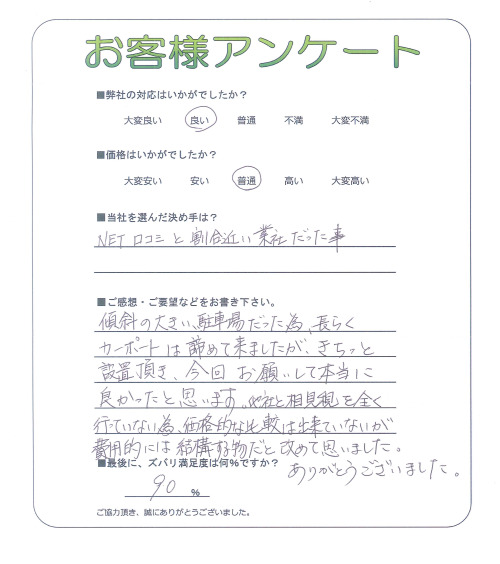 お客様アンケート
■弊社の対応はいかがでしたか？
大変良い 良い 普通 不満 大変不満
■価格はいかがでしたか？
大変安い 安い 普通 高い 大変高い
■当社を選んだ決め手は？
NET 口コミ と 割合近い 業社だった事
■ご感想・ご要望などをお書き下さい。
傾斜の大きい、駐車場だった為、長らく
カーポートは諦めて来ましたが、きちっと
設置頂き、今回 お願いして本当に
良かったと思います。他社と相見積を全く
行っていない為、価格的な比較は出来ていないが
費用的には結構する物だと改めて思いました。
ありがとうございました。
■最後に、ズバリ満足度は何％ですか？
90 ％
ご協力頂き、誠にありがとうございました。